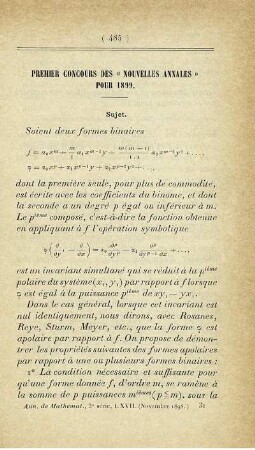 ( 485 )
PREMIER CONCOURS DES « NOUVELLES ANNALES »
POUR 1899.
Sujet.
Soient deux formes binaires
f = a₀xᵐ + m/1 a₁xᵐ⁻¹y + m(m−1)/1.2 a₂xᵐ⁻²y² + ...,
φ = α₀xᵖ + α₁xᵖ⁻¹y + α₂xᵖ⁻²y² + ...,
dont la première seule, pour plus de commodité,
est écrite avec les coefficients du binome, et dont
la seconde a un degré p égal ou inférieur à m.
Le pⁱᵉᵐᵉ composé, c'est-à-dire la fonction obtenue
en appliquant à f l'opération symbolique
φ(∂/∂y, −∂/∂x) = α₀ ∂ᵖ/∂yᵖ − α₁ ∂ᵖ/∂yᵖ⁻¹∂x + ...,
est un invariant simultané qui se réduit à la pⁱᵉᵐᵉ
polaire du système (x₁, y₁) par rapport à f lorsque
φ est égal à la puissance pⁱᵉᵐᵉ de xy₁ − yx₁.
Dans le cas général, lorsque cet invariant est
nul identiquement, nous dirons, avec Rosanes,
Reye, Sturm, Meyer, etc., que la forme φ est
apolaire par rapport à f. On propose de démon-
trer les propriétés suivantes des formes apolaires
par rapport à une ou plusieurs formes binaires :
1° La condition nécessaire et suffisante pour
qu'une forme donnée f, d'ordre m, se ramène à
la somme de p puissances mⁱᵉᵐᵉˢ (p ≦ m), sous la
Ann. de Mathémat., 3ᵉ série, t. XVII. (Novembre 1898.) 31